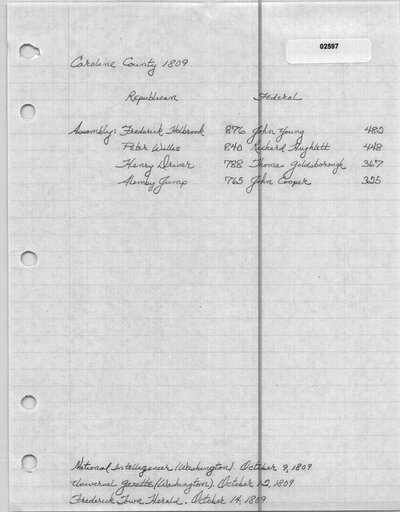 02597
Caroline County 1809
Republican Federal
Assembly: Frederick Holbrook 876 John Young 482
Peter Willis 840 Richard Hughlett 448
Henry Driver 788 Thomas Goldsborough 367
Alemby Jump 765 John Cooper 325
National Intelligencer (Washington). October 9, 1809
Universal Gazette (Washington). October 12, 1809
Frederick Town Herald. October 14, 1809